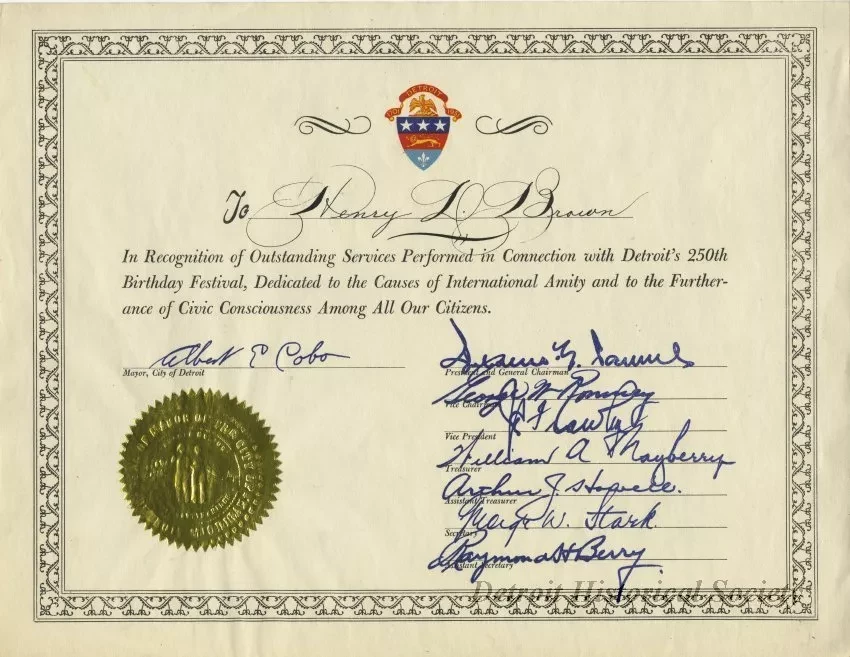 1701 DETROIT 1951
To Henry D. Brown
In Recognition of Outstanding Services Performed in Connection with Detroit's 250th
Birthday Festival, Dedicated to the Causes of International Amity and to the Further-
ance of Civic Consciousness Among All Our Citizens.
Albert E Cobo
Mayor, City of Detroit
President and General Chairman
George W Romney
Vice Chairman
Vice President
William A Mayberry
Treasurer
Arthur J.
Assistant Treasurer
W. Stark
Secretary
Raymond H Berry
Assistant Secretary
MAYOR OF THE CITY OF
Detroit Historical Society